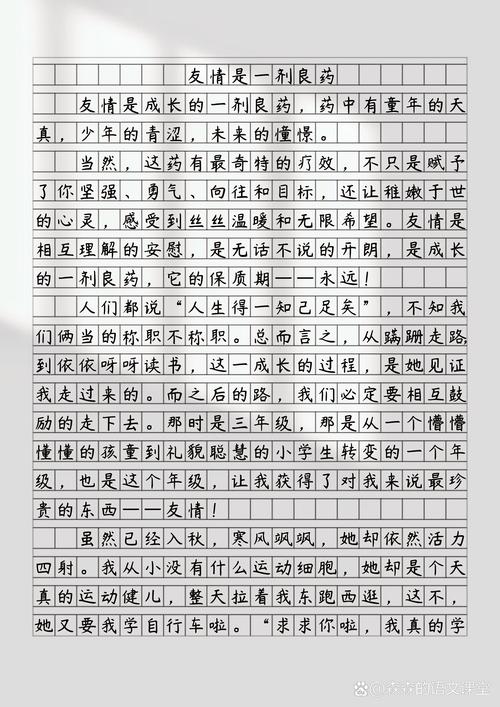 友情是一剂良药
友情是成长的一剂良药，药中有童年的天
真，少年的青涩，未来的憧憬。
当然，这药有最奇特的疗效，不只是赋予
了你坚强、勇气、向往和目标，还让稚嫩于世
的心灵，感受到丝丝温暖和无限希望。友情是
相互理解的安慰，是无话不说的开朗，是成长
的一剂良药，它的保质期——永远！
人们都说“人生得一知己足矣”，不知我
们俩当的称职不称职。总而言之，从蹒跚走路，
到依依呀呀读书，这一成长的过程，是她见证
我走过来的。而之后的路，我们必定要相互鼓
励的走下去。那时是三年级，那是从一个懵懵
懂懂的孩童到礼貌聪慧的小学生转变的一个年
级，也是这个年级，让我获得了对我来说最珍
贵的东西——友情！
虽然已经入秋，寒风飒飒，她却依然活力
四射。我从小没有什么运动细胞，她却是个天
真的运动健儿，整天拉着我东跑西逛，这不，
她又要我学自行车啦。“求求你啦，我真的学
@森森的语文课堂